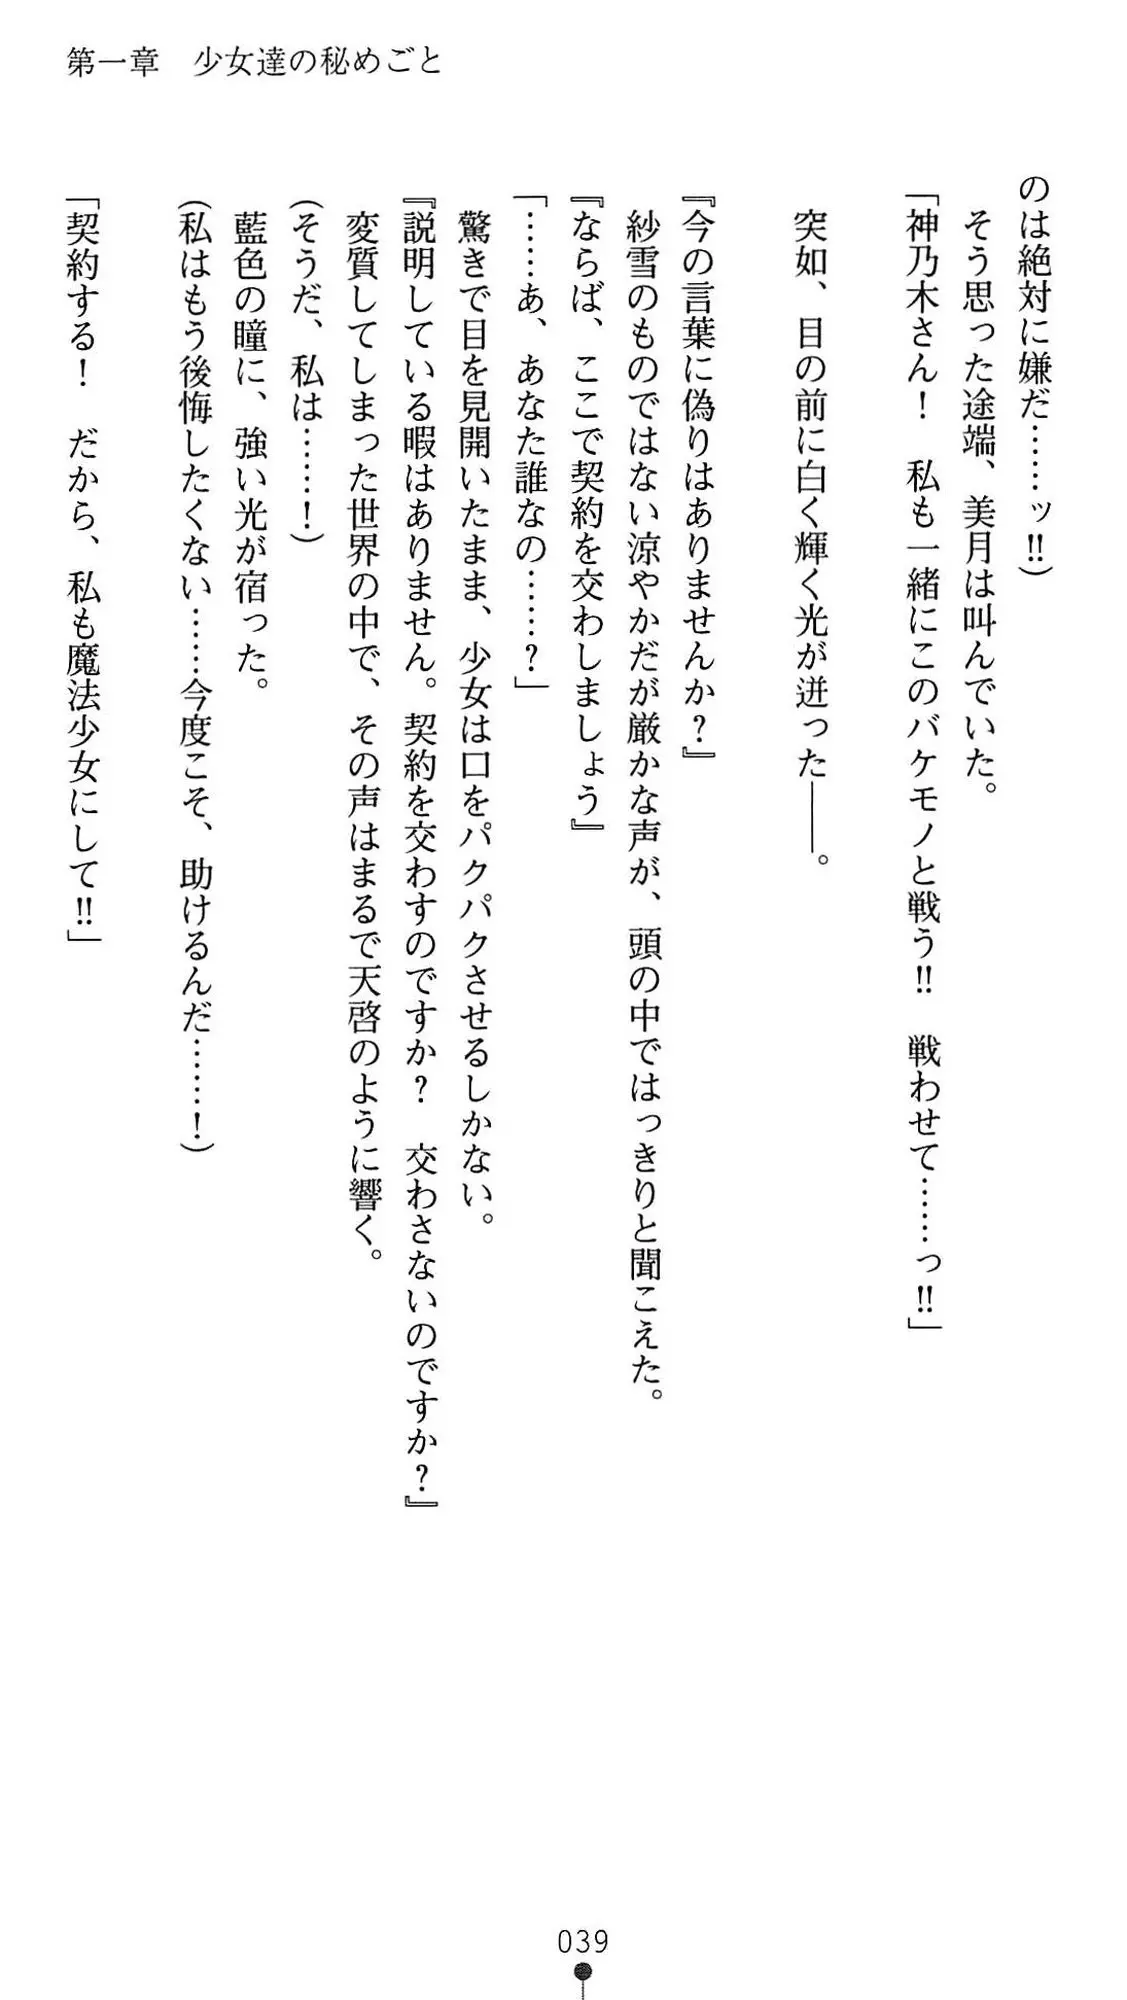 第一章　少女達の秘めごと
のは絶対に嫌だ……ッ!!)
　そう思った途端、美月は叫んでいた。
「神乃木さん！　私も一緒にこのバケモノと戦う!!　戦わせて……っ!!」
　突如、目の前に白く輝く光が迸った――。
『今の言葉に偽りはありませんか？』
　紗雪のものではない涼やかだが厳かな声が、頭の中ではっきりと聞こえた。
『ならば、ここで契約を交わしましょう』
「……あ、あなた誰なの……？」
　驚きで目を見開いたまま、少女は口をパクパクさせるしかない。
『説明している暇はありません。契約を交わすのですか？　交わさないのですか？』
　変質してしまった世界の中で、その声はまるで天啓のように響く。
(そうだ、私は……！)
　藍色の瞳に、強い光が宿った。
(私はもう後悔したくない……今度こそ、助けるんだ……！)
「契約する！　だから、私も魔法少女にして!!」
039